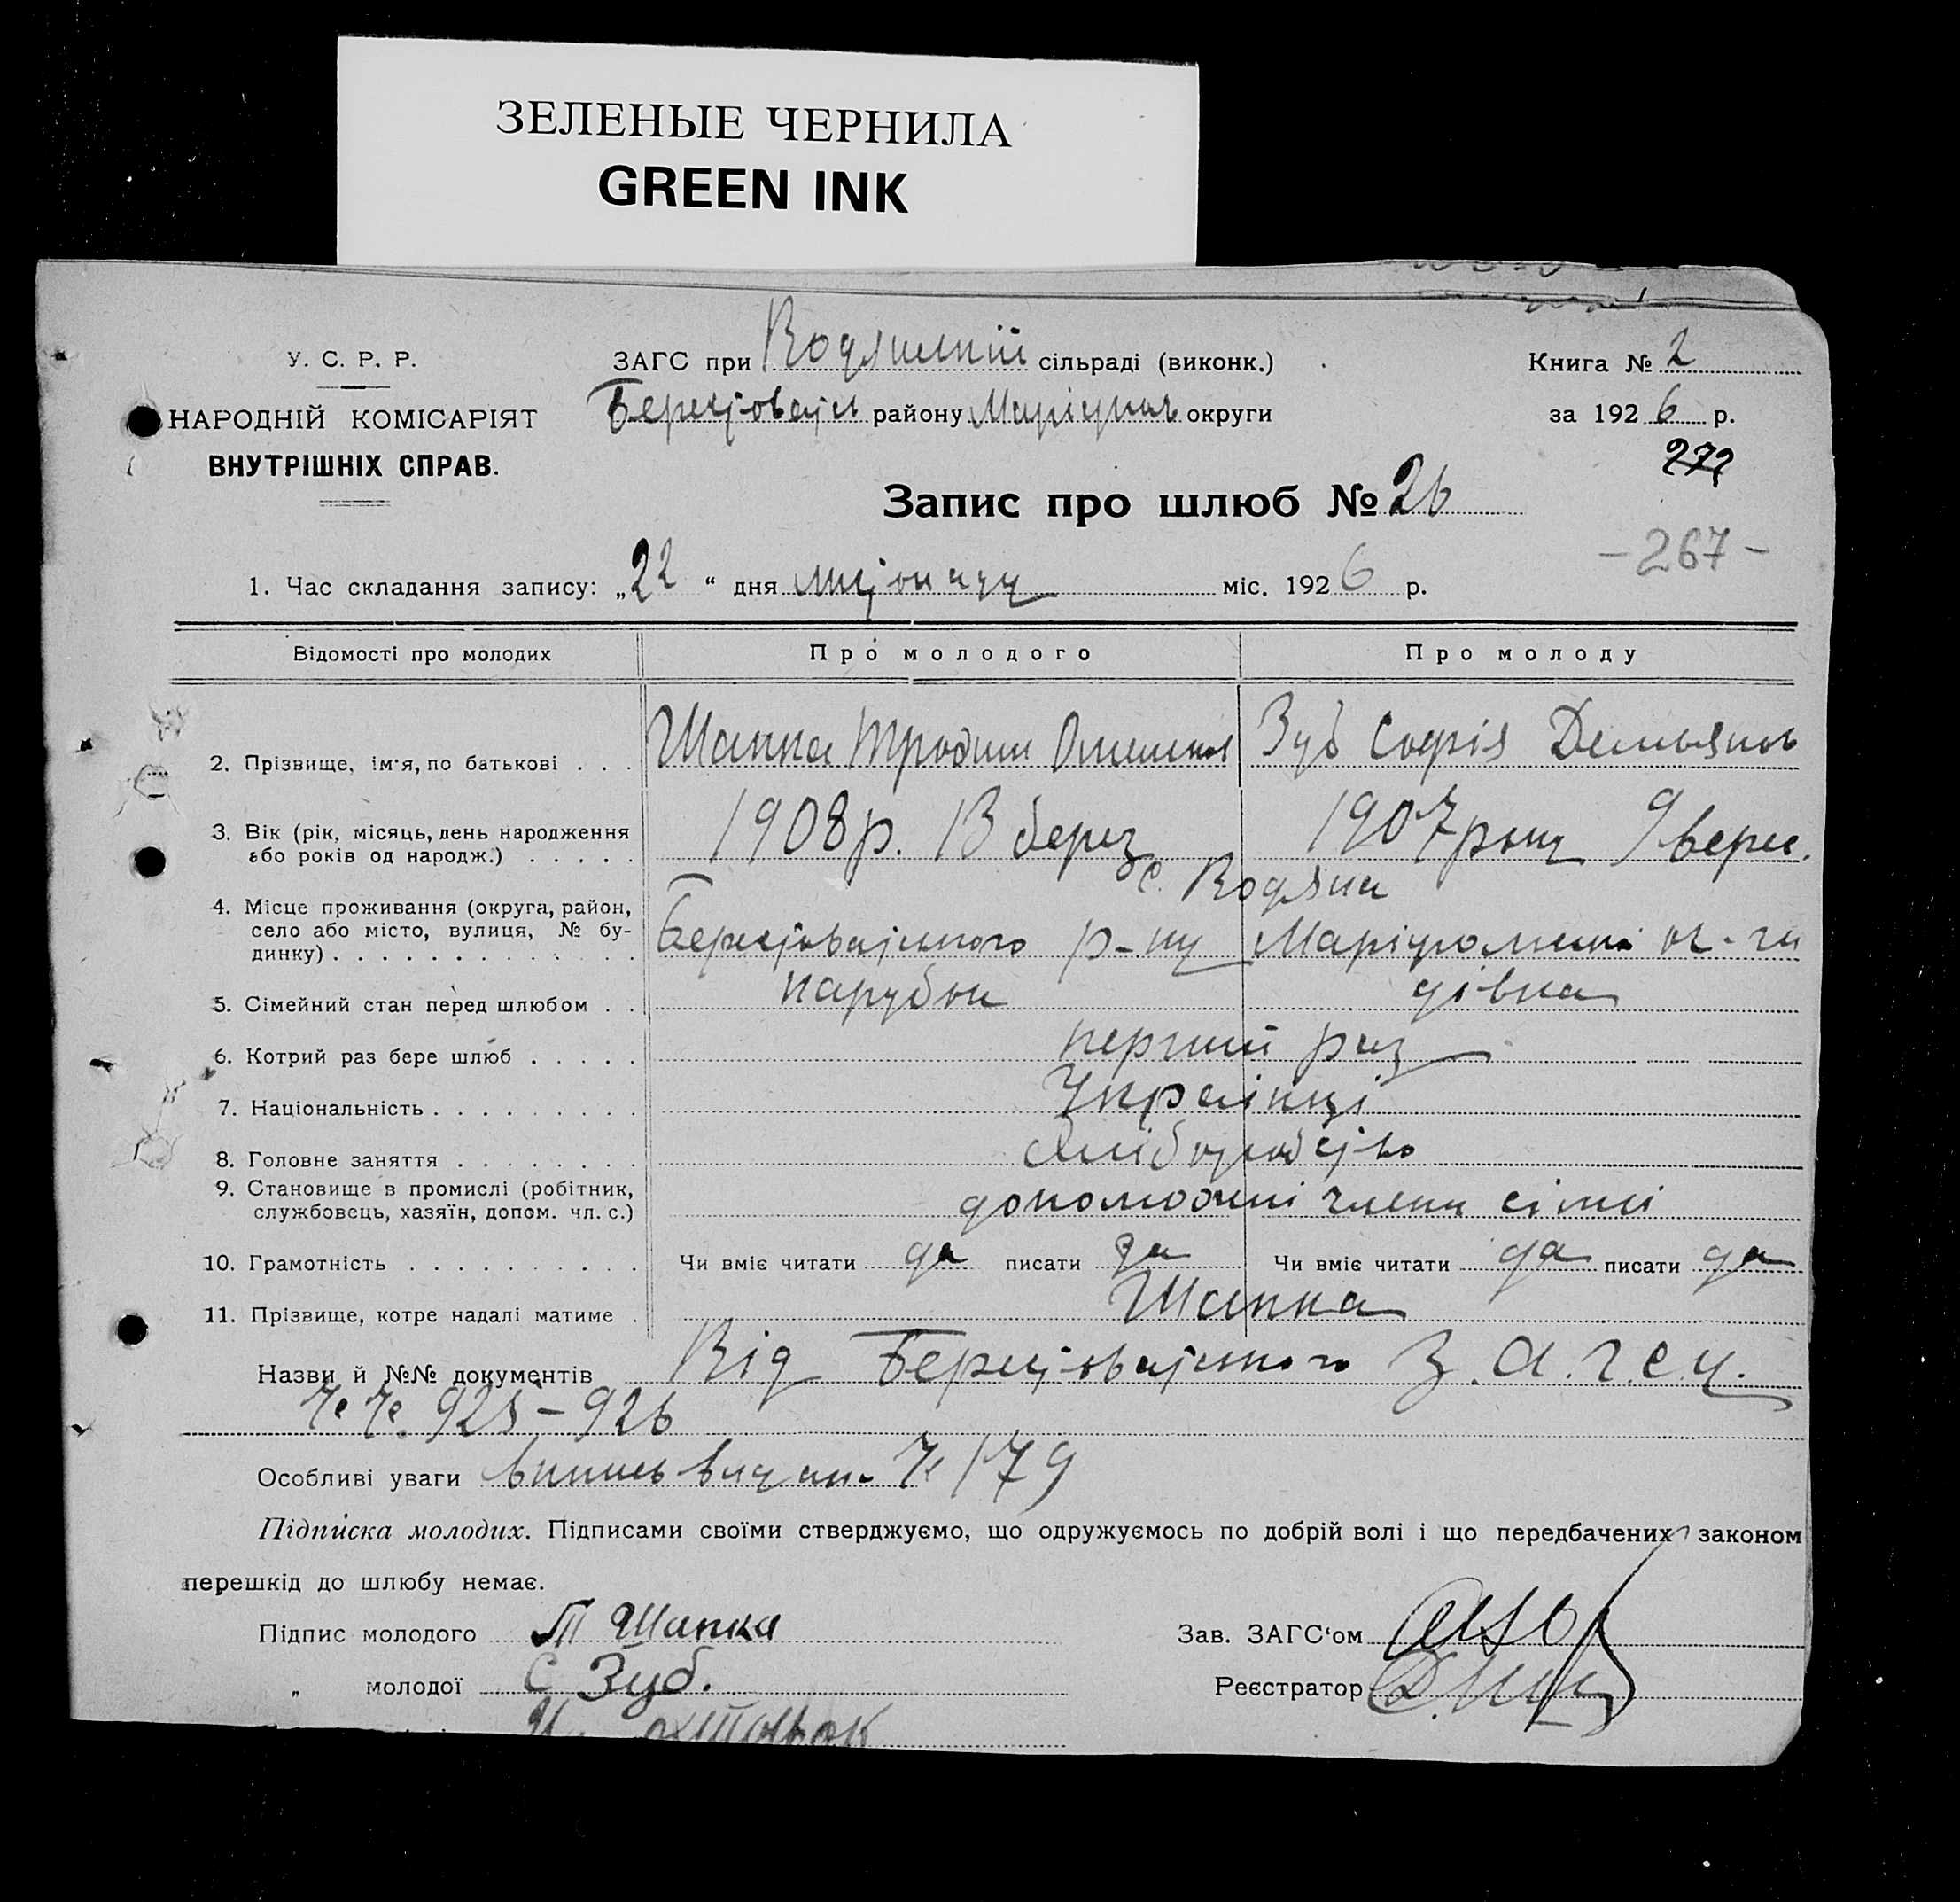 ЗЕЛЕНЫЕ ЧЕРНИЛА
GREEN INK
У. С. Р. Р.
НАРОДНІЙ КОМІСАРІЯТ
ВНУТРІШНІХ СПРАВ.
ЗАГС при Водянській сільраді (виконк.)
району Маріупіль округи
Книга № 2
за 1926 р.
272
Запис про шлюб № 26
-267-
1. Час складання запису: „22“ дня листопаду міс. 1926 р.
Відомості про молодих Про молодого Про молоду
2. Прізвище, ім'я, по батькові . . . Шапка Трохим Зуб Софія Демьянов
3. Вік (рік, місяць, день народження
або років од народж.) . . . . . 1908 р. 13 берез 1907 року 9 верес.
с. Водяна
4. Місце проживання (округа, район,
село або місто, вулиця, № бу-
динку) . . . . . . . . . . . . . р-ну Маріупольської ок-ги
5. Сімейний стан перед шлюбом . . парубок дівка
6. Котрий раз бере шлюб . . . . . перший раз
7. Національність . . . . . . . . . Українці
8. Головне заняття . . . . . . . . Хліборобство
9. Становище в промислі (робітник,
службовець, хазяїн, допом. чл. с.) допомочні члени сімі
10. Грамотність . . . . . . . . . . Чи вміє читати да писати да Чи вміє читати да писати да
11. Прізвище, котре надалі матиме . Шапка
Назви й №№ документів Від З.А.Г.С.у.
№№. 925-926
Особливі уваги випись видан. № 179
Підписка молодих. Підписами своїми стверджуємо, що одружуємось по добрій волі і що передбачених законом
перешкід до шлюбу немає.
Підпис молодого Т Шапка
Зав. ЗАГС‘ом
„ молодої С Зуб.
Реєстратор